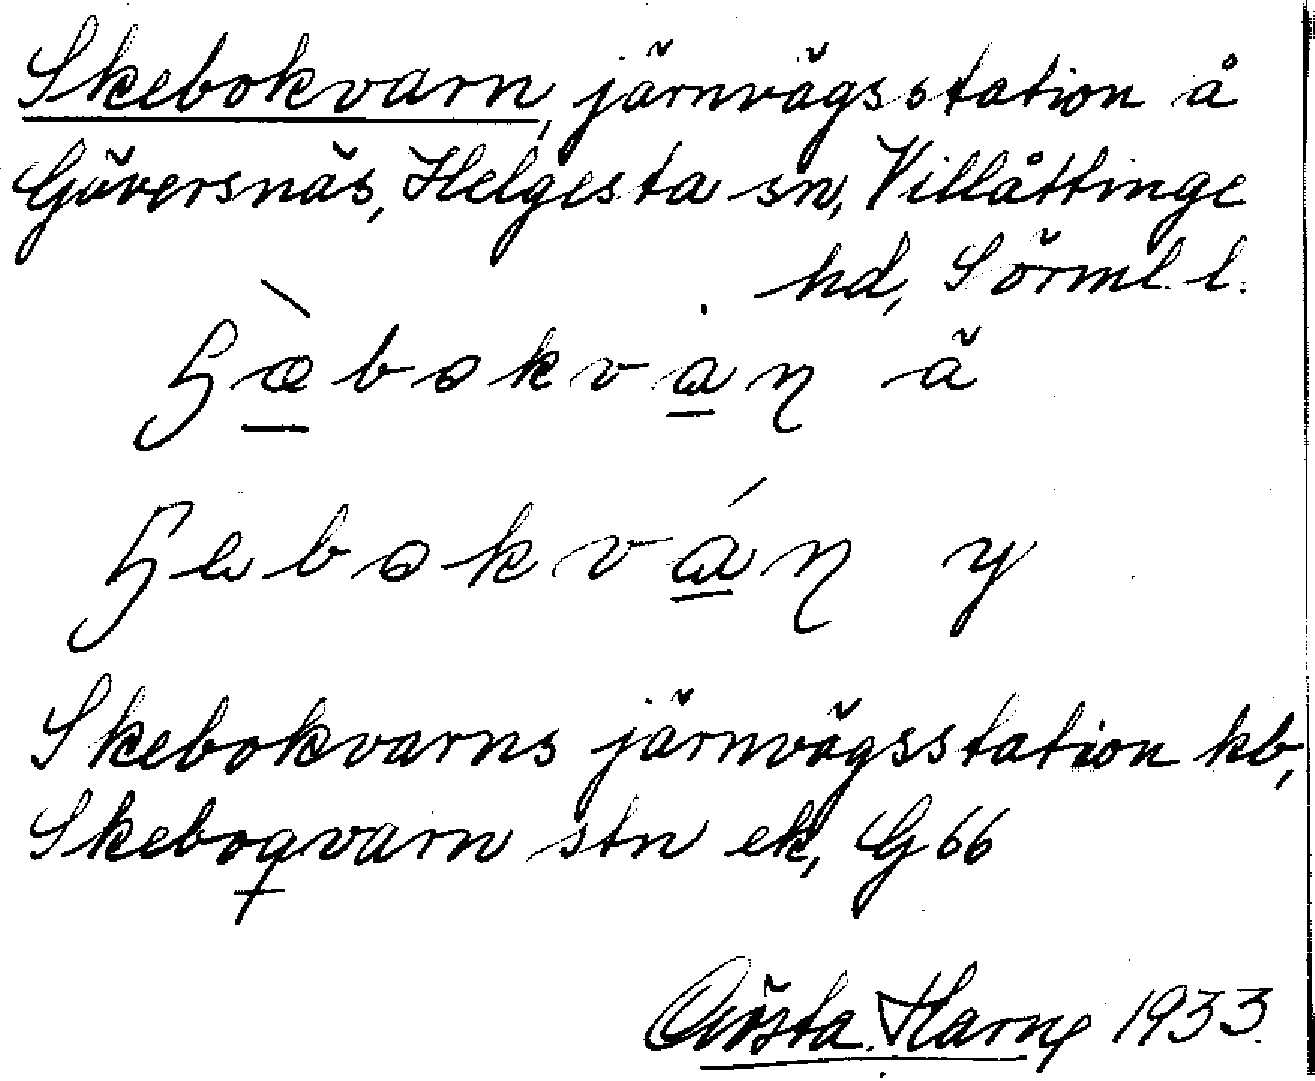 Skebokvarn, järnvägsstation å
Gäversnäs, Helgesta sn, Villåttinge
hd, Sörml. l.
bokvan ä
bokván y
Skebokvarns järnvägsstation kb,
Skeboqvarn stn ek, G 66
Gösta Harne 1933.